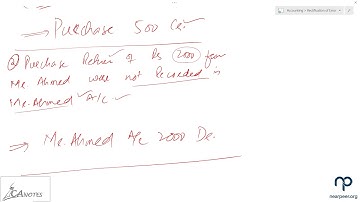 Accounting > Rectification of Error
→ Purchase 500 Cr.
② Purchase Return of Rs 2000 from
Mr Ahmed were not Recorded in
Mr. Ahmed A/C
⇒ Mr. Ahmed A/c 2000 De.
CANOTES
nearpeer.org